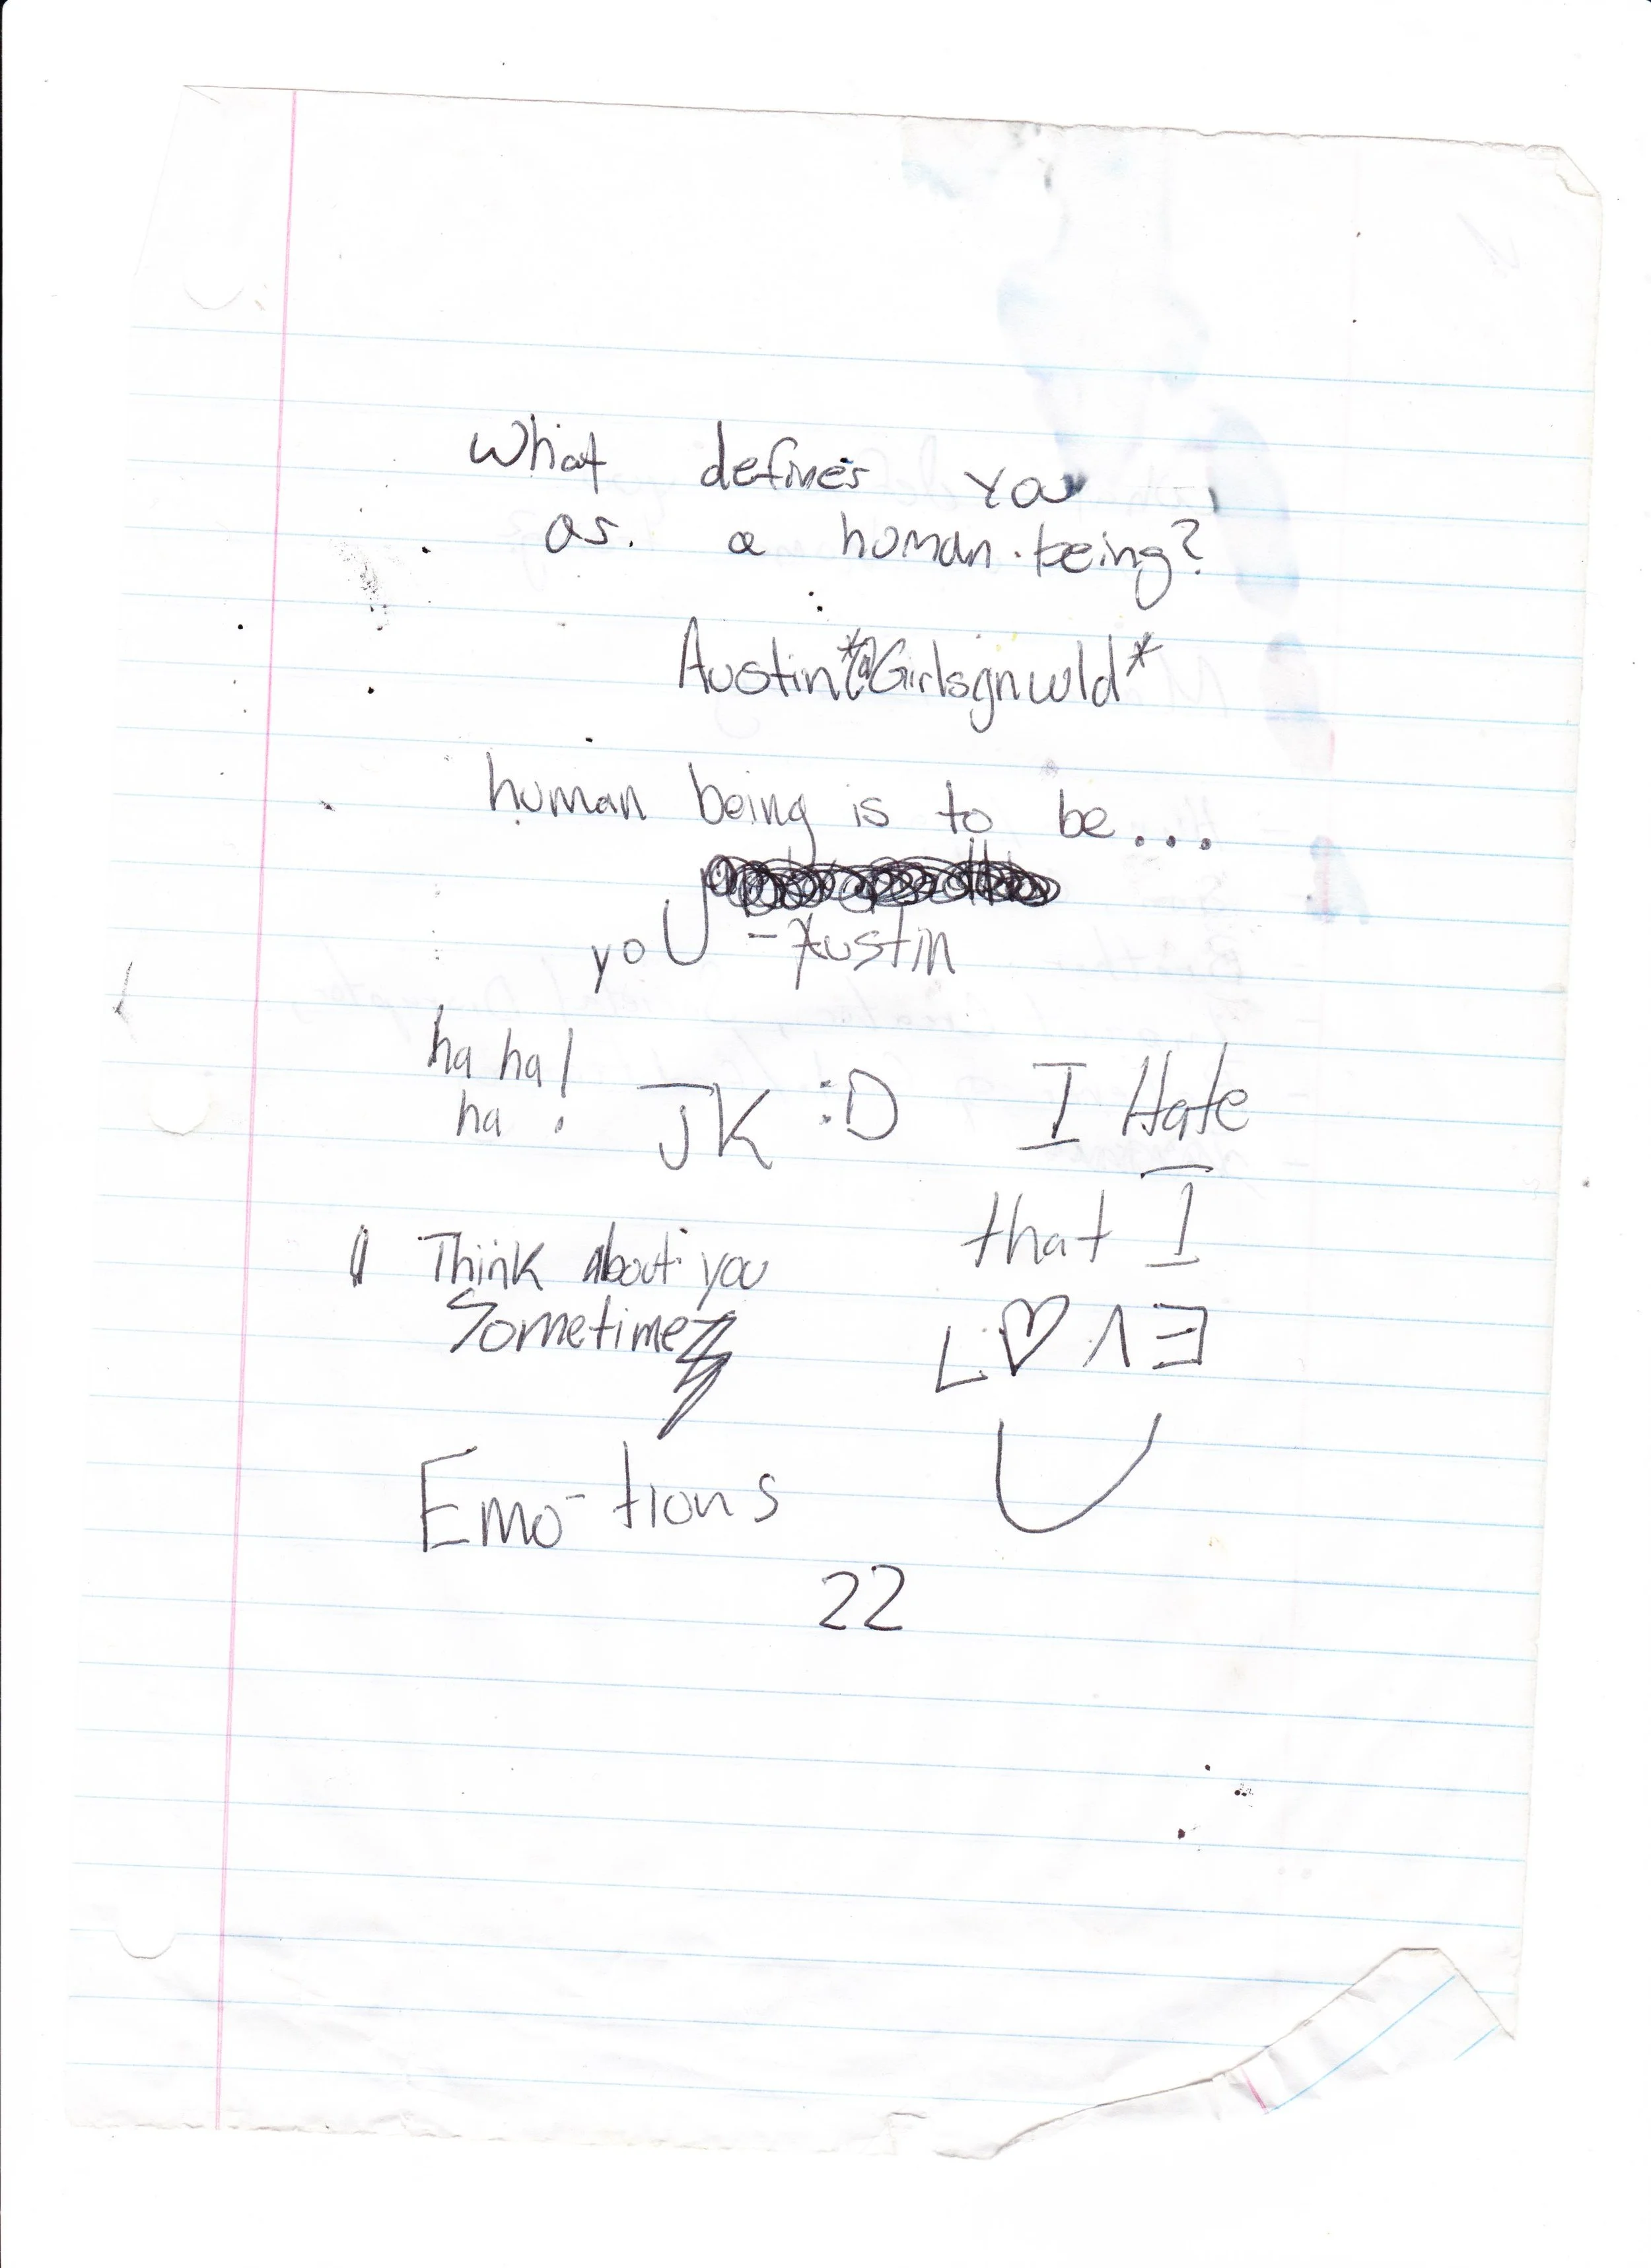 What defines you
as a human being?
Austin*@Girlsgnwld*
human being is to be...
yoU - Austin
ha ha!
ha!
JK :D
I Hate
that I
L♡ΛƎ
U
I Think about you
Sometimes
Emo-tions
22